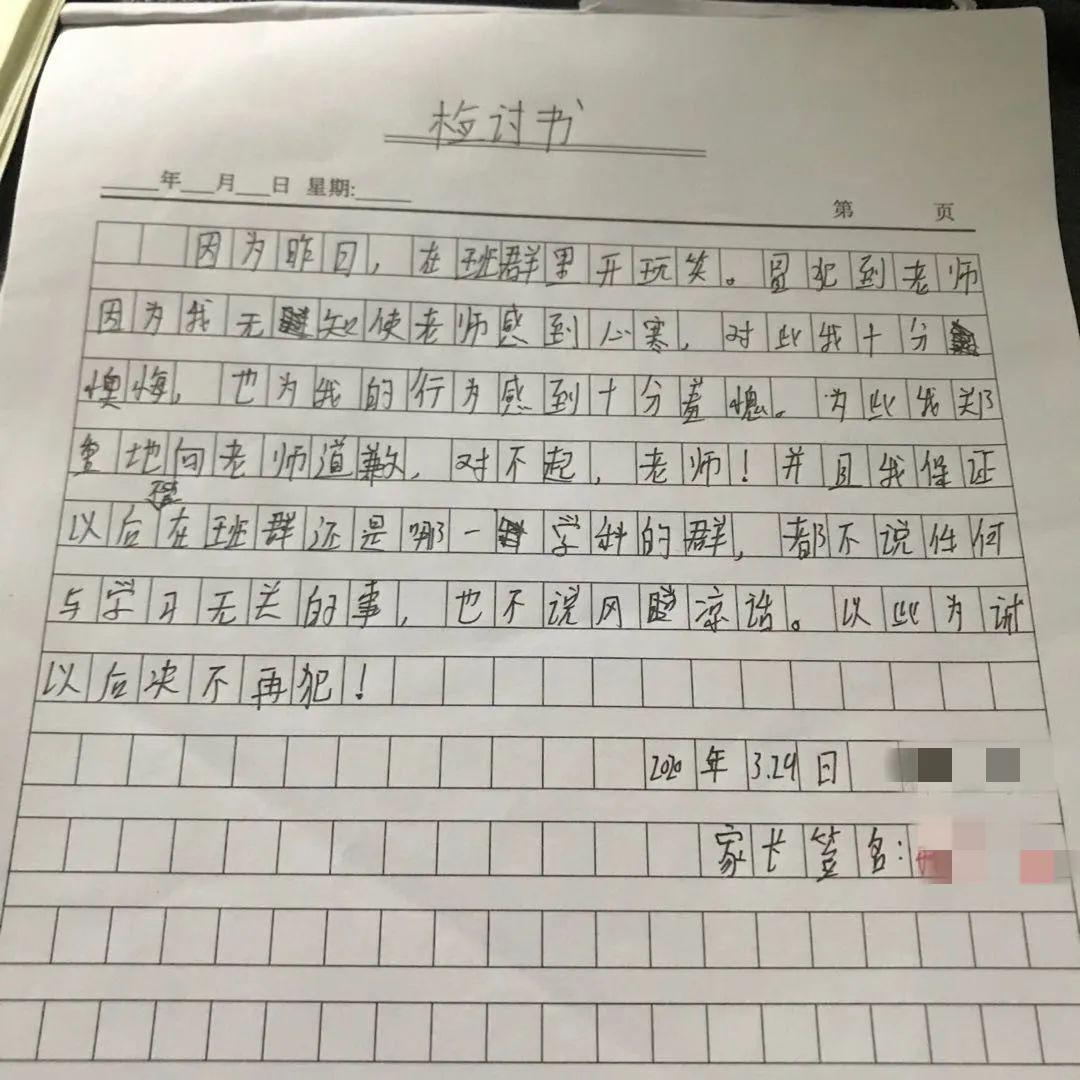 检讨书
年 月 日 星期:
第 页
因为昨日,在班群里开玩笑。冒犯到老师
因为我无知使老师感到心寒,对此我十分
懊悔,也为我的行为感到十分羞愧。为此我郑
重地向老师道歉,对不起,老师!并且我保证
以后在班群还是哪一学科的群,都不说任何
与学习无关的事,也不说风凉话。以此为诫
以后决不再犯!
2020年3.29日
家长签名: